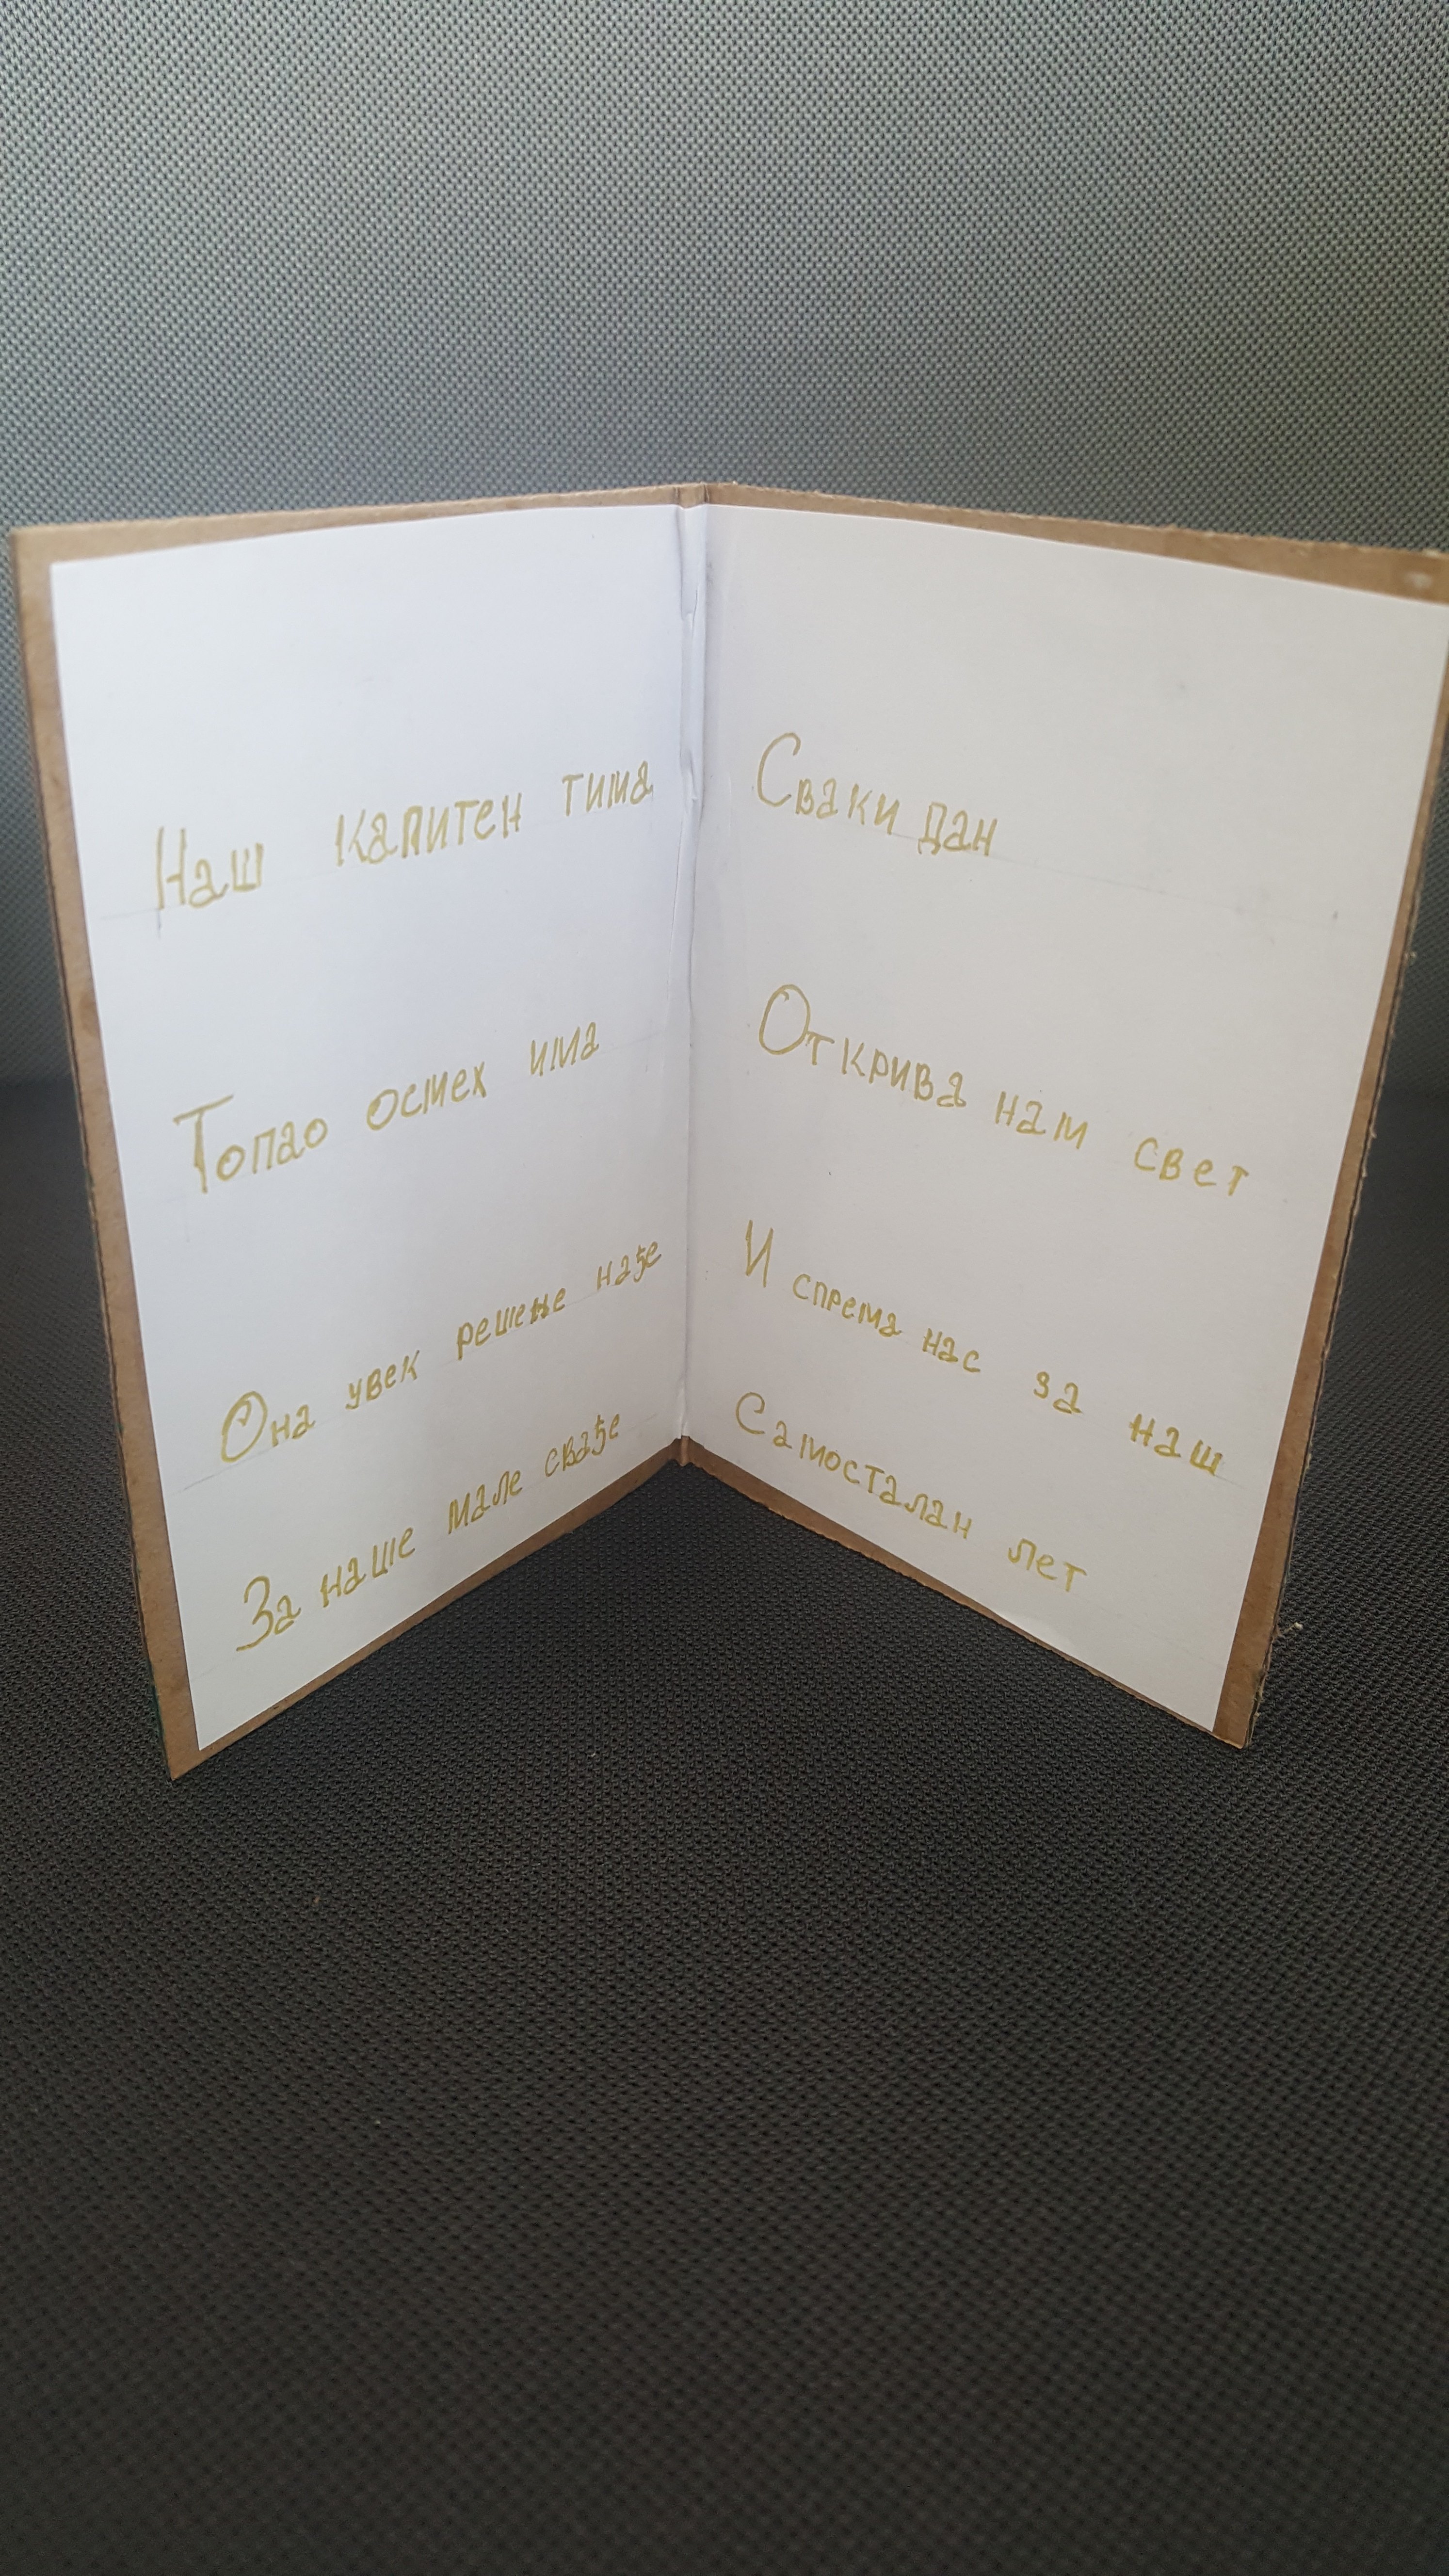 Наш капитен тима
Топао осмех има
Она увек решење нађе
За наше мале свађе
Сваки дан
Открива нам свет
И спрема нас за наш
Самосталан лет